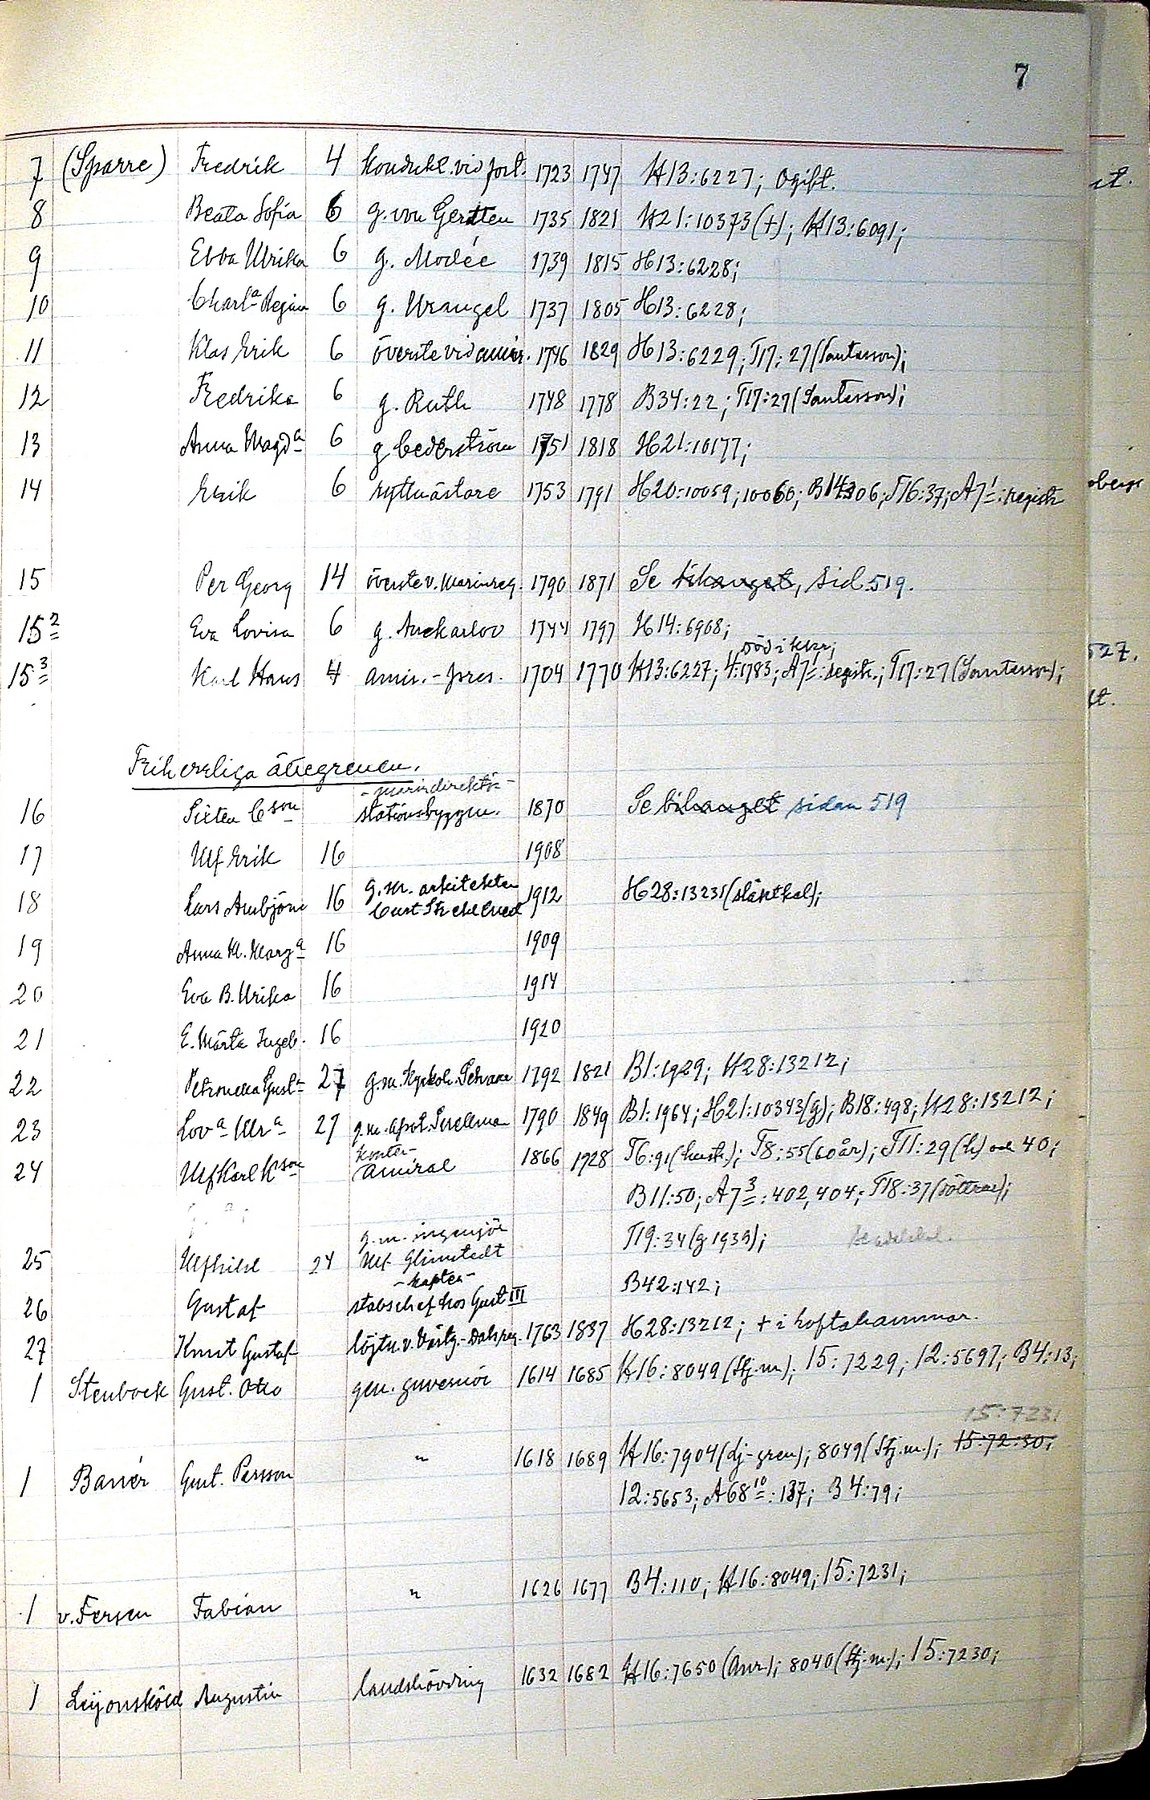 7
7 (Sparre) Fredrik 4 kondukt. vid fort. 1723 1747 H13:6227; Ogift.
8 Beata Sofia 6 g. von Gertten 1735 1821 H21:10373(+); H13:6091;
9 Ebba Ulrika 6 g. Modée 1739 1815 H13:6228;
10 Charl<sup>a</sup> Regina 6 g. Wrangel 1737 1805 H13:6228;
11 Klas Erik 6 överste vid amir. 1746 1829 H13:6229; T17:27(Santesson);
12 Fredrika 6 g. Ruth 1748 1778 B34:22; T17:27(Santesson);
13 Anna Magd<sup>a</sup> 6 g Cederström 1751 1818 H21:10177;
14 Erik 6 ryttmästare 1753 1791 H20:10059; 10060; T16:37; A7<sup>1</sup>: registr
15 Per Georg 14 överste v. Marinreg. 1790 1871 Se bihanget, sid. 519.
15<sup>2</sup> Eva Lovisa 6 g. Anckarloo 1744 1797 H14:6908;
död i kkr;
15<sup>3</sup> Karl Hans 4 amir.-pres. 1704 1770 H13:6227; 4:1783; A7<sup>1</sup>: registr.; T17:27(Santesson);
Friherrliga ättegrenen.
-marindirektör-
16 Sixten C<sup>son</sup> stationsbyggm. 1870 Se bihanget sidan 519
17 Ulf Erik 16 1908
g. m. arkitekten
18 Lars Ambjörn 16 1912 H28:13231(släktkal);
19 Anna M. Marg<sup>a</sup> 16 1909
20 Eva B. Ulrika 16 1914
21 E. Märta Ingeb. 16 1920
22 Petronella Gust<sup>a</sup> 27 g.m. kyrkoh. 1792 1821 B1:1929; H28:13212;
23 Lov<sup>a</sup> Ulr<sup>a</sup> 27 g.m. 1790 1849 B1:1964; H21:10343(g); B18:498; H28:13212;
konter-
24 Ulf Karl K<sup>son</sup> amiral 1866 1928 T6:91(hustr.); T8:55(60år); T11:29(h) och 40;
B11:50; A7<sup>3</sup>:402,404; T18:37(döttrar);
g.m. ingenjör
T19:34(g 1939);
25 Ulfhild 24 Ulf Glimstedt
-kapten-
B42:142;
26 Gustaf stabschef hos Gust III
27 Knut Gustaf löjtn. v. Västg.-Dals reg. 1763 1837 H28:13212; + i Loftahammar.
1 Stenbock Gust. Otto gen. guvernör 1614 1685 H16:8049(Stj.m); 15:7229; 12:5697; B4:13;
15:7231
1 Banér Gust. Persson " 1618 1689 H16:7904(dj-gren); 8049(Stj.m); 15:72:30;
12:5653; A68<sup>10</sup>:137; B4:79;
1 v. Fersen Fabian " 1626 1677 B4:110; H16:8049; 15:7231;
1 Leijonsköld Augustin landshövding 1632 1682 H16:7650(Anr); 8040(Stj.m); 15:7230;